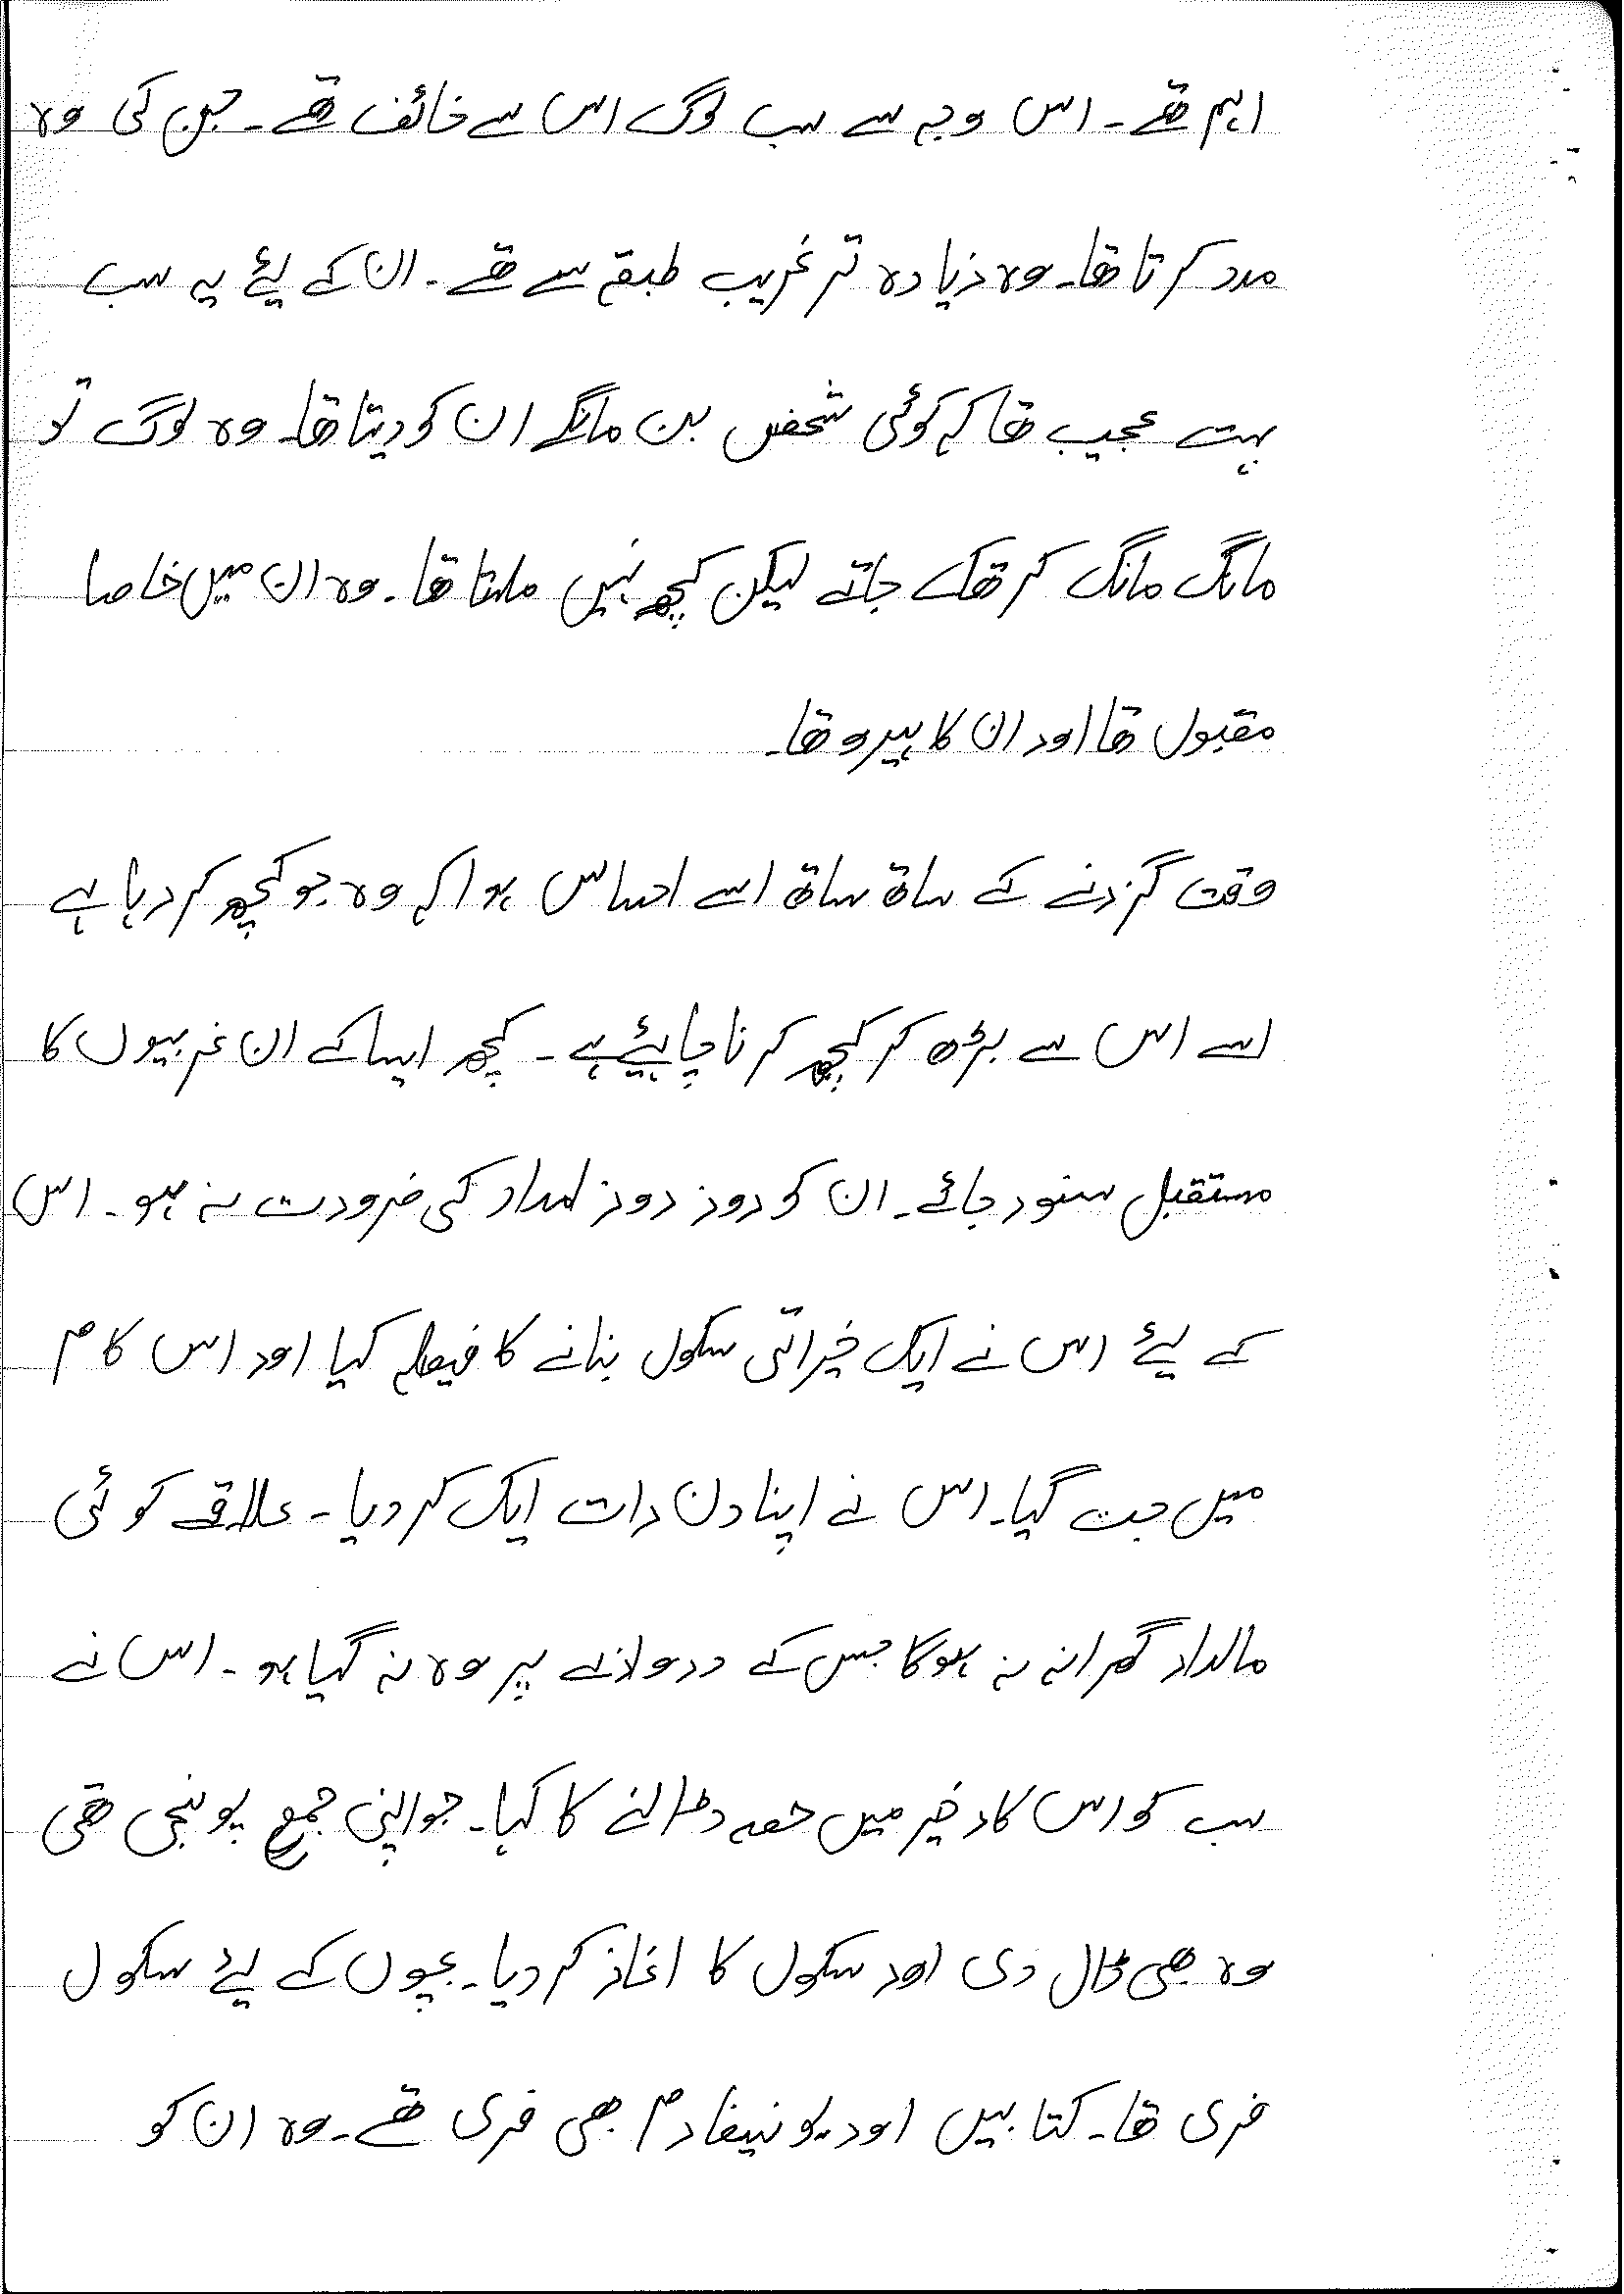 اہم تھے۔ اس وجہ سے سب لوگ اس سے خائف تھے۔ جن کی وہ
مدد کرتا تھا۔ وہ زیادہ تر غریب طبقے سے تھے۔ ان کے لئے یہ سب
بہت عجیب تھا کہ کوئی شخص بن مانگے ان کو دیتا تھا۔ وہ لوگ تو
مانگ مانگ کر تھک جاتے لیکن کچھ نہیں ملتا تھا۔ وہ ان میں خاصا
مقبول تھا اور ان کا ہیرو تھا۔
وقت گزرنے کے ساتھ ساتھ اسے احساس ہوا کہ وہ جو کچھ کر رہا ہے
اسے اس سے بڑھ کر کچھ کرنا چاہیئے ہے۔ کچھ ایسا کے ان غریبوں کا
مستقبل سنور جائے۔ ان کو روز روز امداد کی ضرورت نہ ہو۔ اس
کے لئے اس نے ایک خیراتی سکول بنانے کا فیصلہ کیا اور اس کام
میں جت گیا۔ اس نے اپنا دن رات ایک کر دیا۔ علاقے کوئی
مالدار گھرانہ نہ ہوگا جس کے دروازے پر وہ نہ گیا ہو۔ اس نے
سب کو اس کار خیر میں حصہ ڈالنے کا کہا۔ جو اپنی جمع پونجی تھی
وہ بھی ڈال دی اور سکول کا اغاز کر دیا۔ بچوں کے لئے سکول
فری تھا۔ کتابیں اور یونیفارم بھی فری تھے۔ وہ ان کو